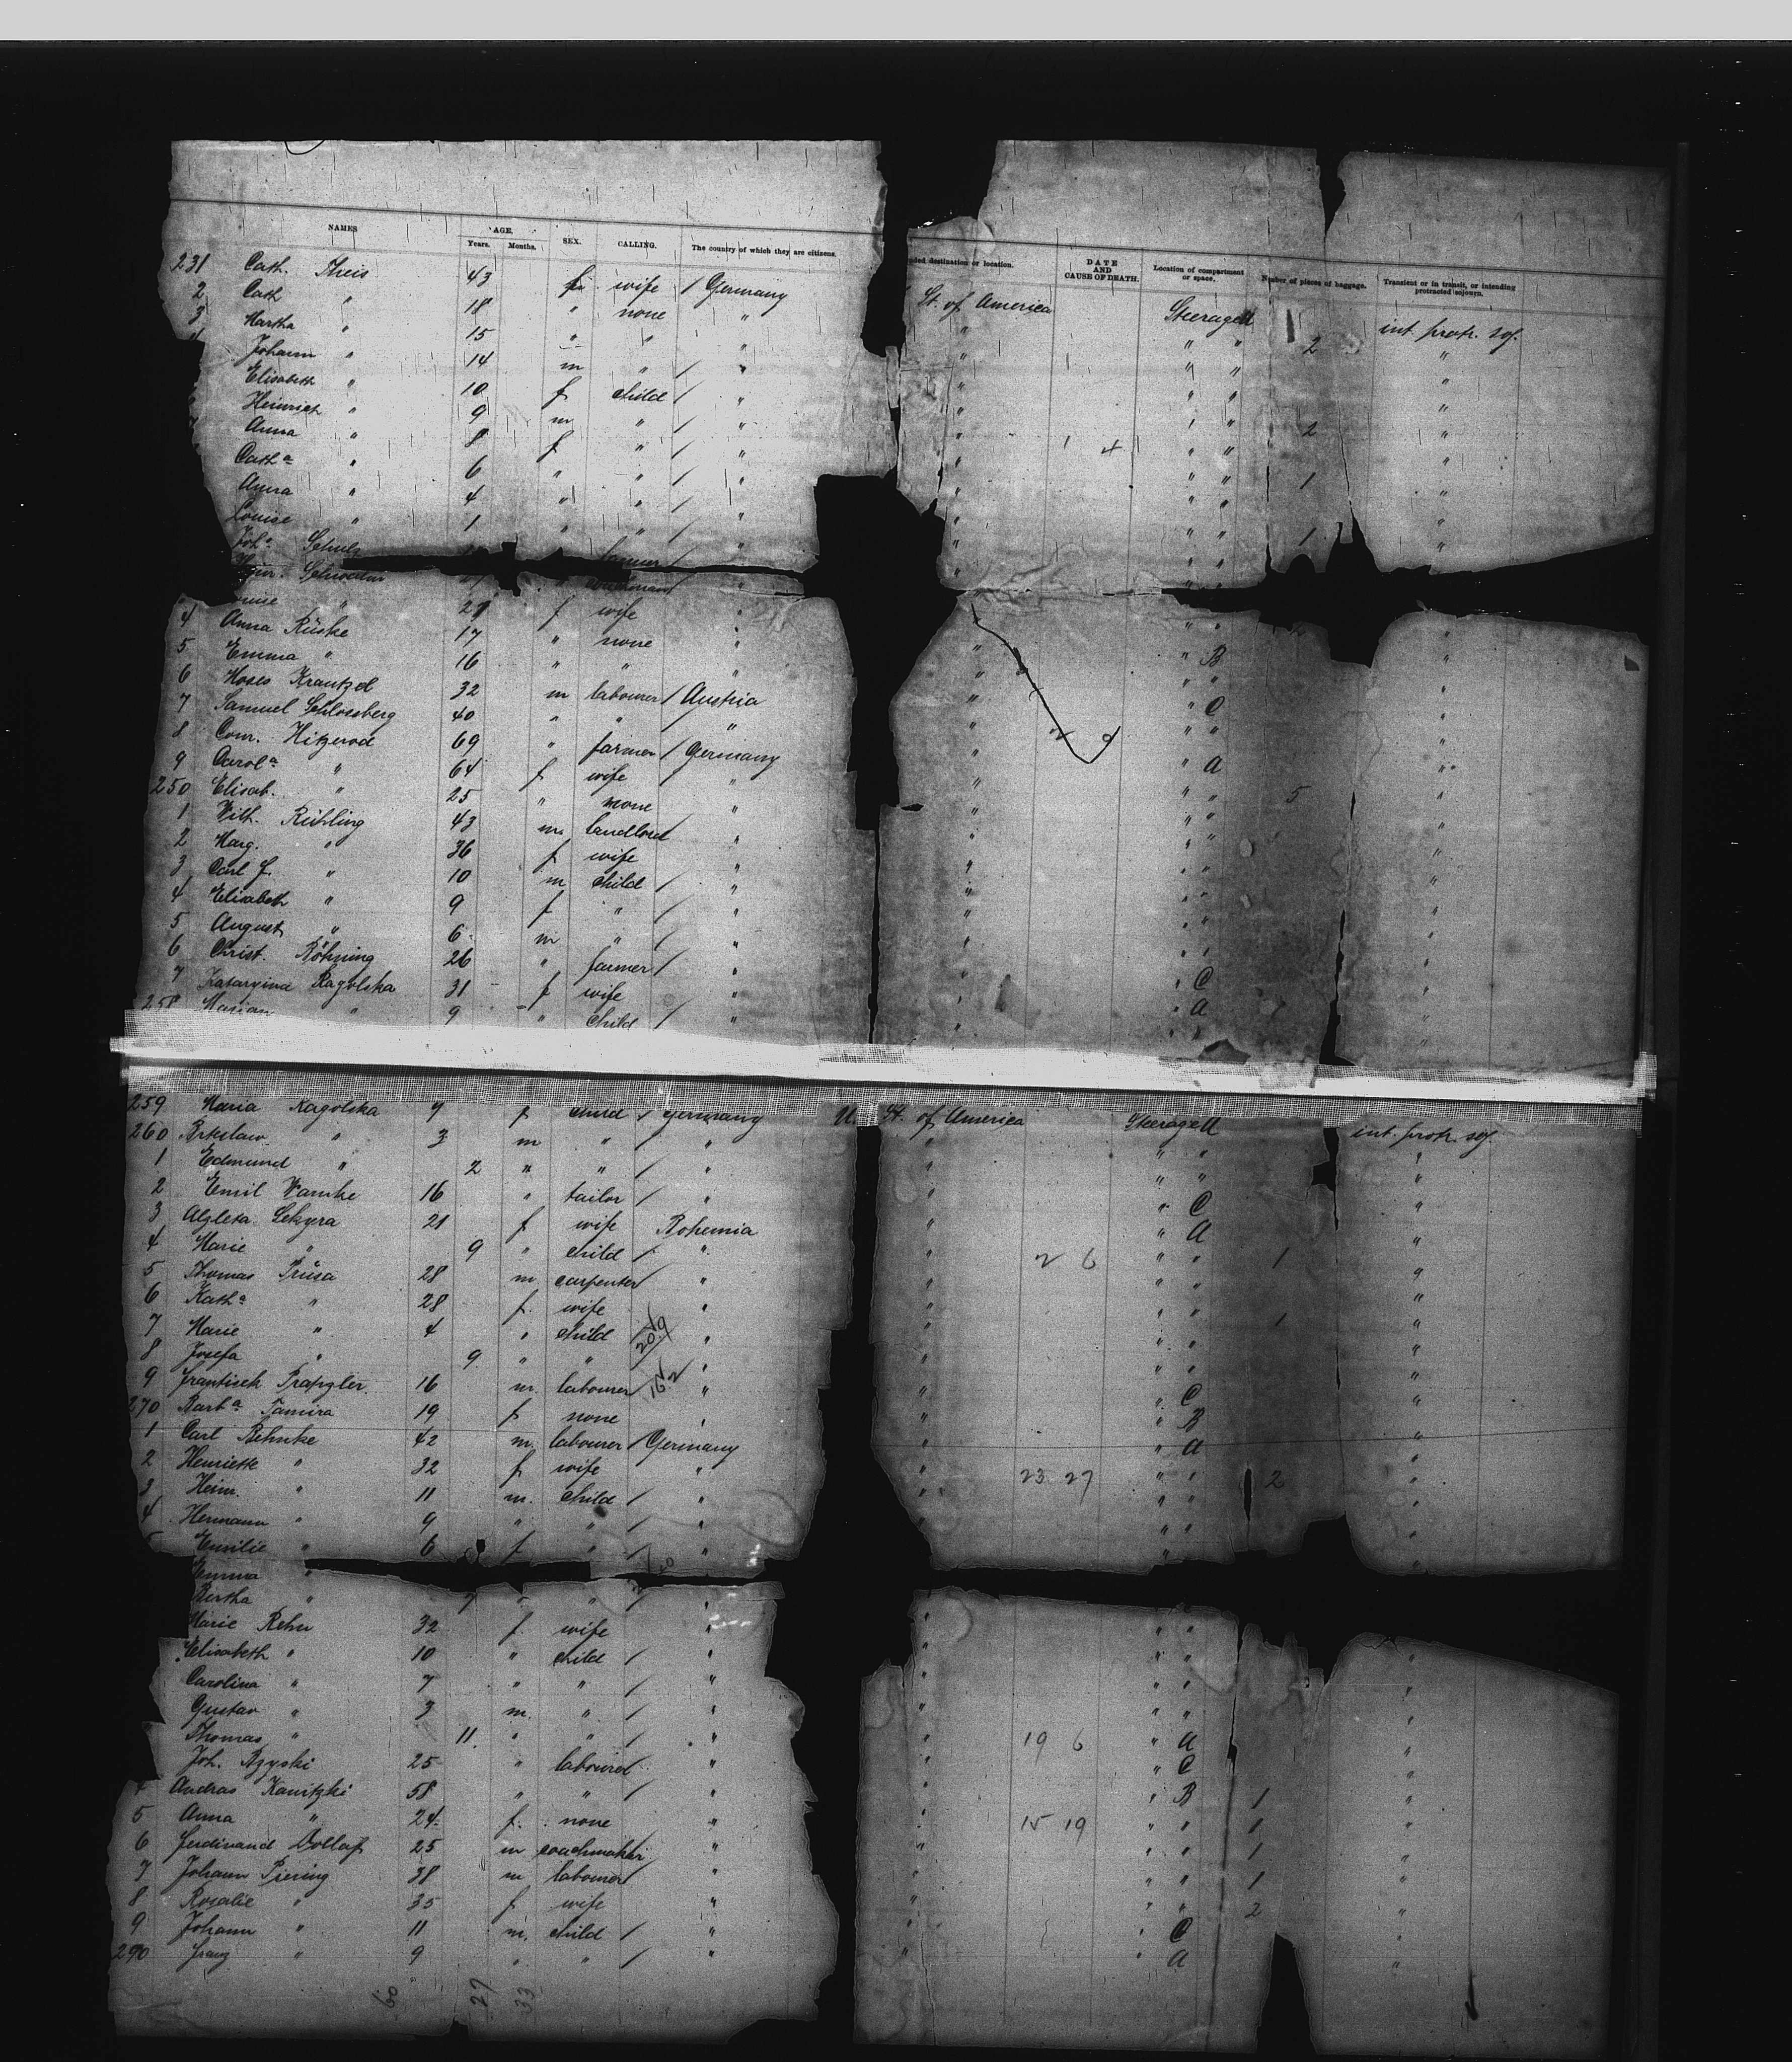 NAMES AGE. Years. Months. SEX. CALLING. The country of which they are citizens. ded destination or location. DATE AND CAUSE OF DEATH. Location of compartment or space. Number of pieces of baggage. Transient or in transit, or intending protracted sojourn.
231 Cath. Theis 43 f. wife / Germany St. of America Steerage A 1 int. protr. soj.
2 Cath " 18 " none " " " " 2 "
3 Martha " 15 " " " " " " "
Johann " 14 m " / " " " " "
Elisabeth " 10 f child / " " " " 2 "
Heinrich " 9 m " / " " 1 4 " " "
Anna " 8 f " / " " " " 1 "
Catha " 6 " " / " " " " "
Anna " 4 " " / " " " " 1 "
Louise " 1 " " / " " " "
Joh. Schulz farmer / "
Schroeder "
" 27 f wife "
4 Anna Rüske 17 " none " " " B "
5 Emma " 16 " " " " " " "
6 Moses Krantzel 32 m labourer / Austria " " C "
7 Samuel Schlossberg 40 " " " " " " "
8 Conr. Hitzerod 69 " farmer / Germany " " A "
9 Carola " 64 f wife " " " " 5 "
250 Elisab. " 25 " none " " " " "
1 Wilh. Rühling 43 m landlord / " " " " "
2 Marg. " 36 f wife " " " " "
3 Carl J. " 10 m child / " " " " "
4 Elisabeth " 9 f " / " " " " "
5 August " 6 m " / " " " " "
6 Christ. Röhning 26 " farmer / " " " C "
7 Katargina Ragolska 31 f wife " " " A "
258 Marian " 9 " child / " "
259 Maria Ragolska 7 f child / Germany U. St. of America Steerage A int. protr. soj.
260 " 3 m " " " " " "
1 Edmund " 2 " " / " " " " "
2 Emil Wamke 16 " tailor / " " " C "
3 Alzleta Sekyera 21 f wife Bohemia " " A "
4 Marie " 9 " child / " " 2 6 " " 1 "
5 Thomas Průsa 28 m carpenter / " " " " "
6 Katha " 28 f. wife " " " " 1 "
7 Marie " 4 " child 20.9 " " " " "
8 Josefa " 9 " " " " " " "
9 Frantisek 16 m. labourer / 16.2 " " " C "
270 Barba Tamira 19 f none " " " B "
1 Carl Behnke 42 m. labourer / Germany " " A "
2 Henriette " 32 f wife " " 23 27 " " 2 "
3 Heinr. " 11 m. child / " " " " "
4 Hermann " 9 " " / " " " " "
5 Emilie " 6 f " / " " "
Emma "
Bertha " 7 " " / "
Marie Rehn 32 f. wife " " " "
Elisabeth " 10 " child / " " " " "
Carolina " 7 " " / " " " " "
Gustav " 3 m. " / " " " " "
Thomas " 11 " " / " " 19 6 " A "
Joh. Rzyski 25 " labourer / " " " C "
4 Andras Kanitzki 58 " " / " " " B 1 "
5 Anna " 24 f. none " " 15 19 " " 1 "
6 Ferdinand Dollaf 25 m coachmaker / " " " " 1 "
7 Johann Piering 38 m labourer / " " " " 1 "
8 Rosalie " 35 f wife " " " " 2 "
9 Johann " 11 m. child / " " " C "
290 Franz " 9 " " / " " " A "
60 27 33